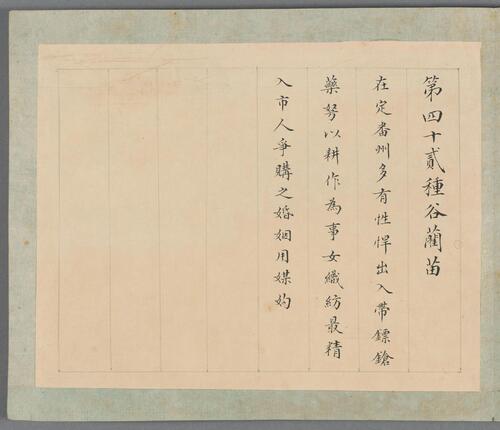 第四十貳種谷藺苗
在定番州多有性悍出入帶鏢鎗
藥弩以耕作為事女織紡最精
入市人爭購之婚姻用媒妁